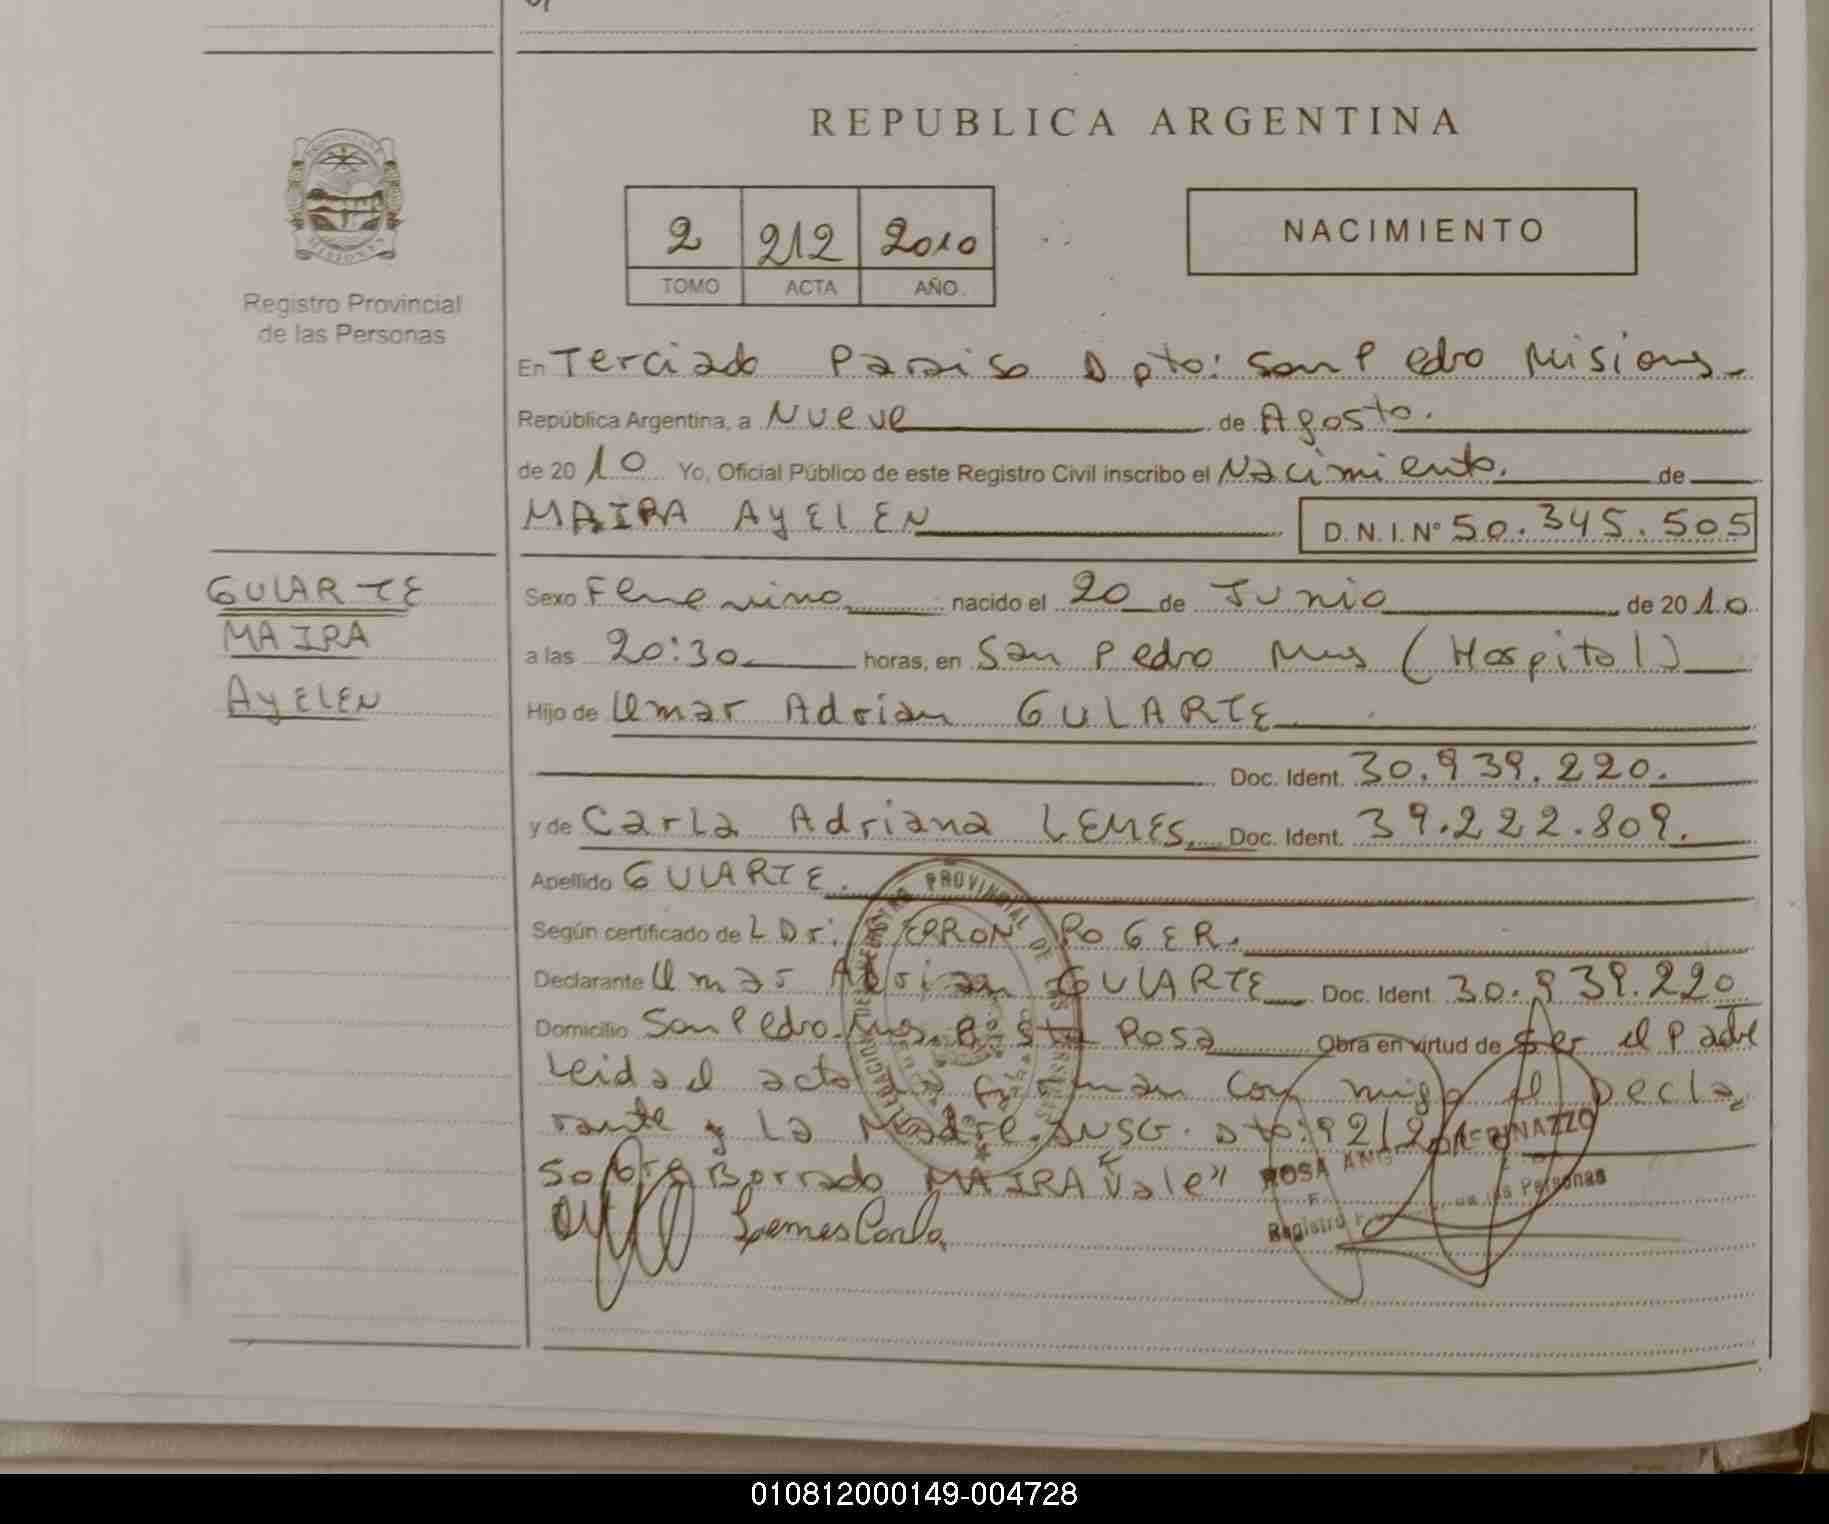 REPUBLICA ARGENTINA
2 212 2010
TOMO ACTA AÑO
NACIMIENTO
Registro Provincial
de las Personas
En Terciado Paraiso Dpto: San Pedro Misiones
República Argentina, a Nueve de Agosto.
de 2010 Yo, Oficial Público de este Registro Civil inscribo el Nacimiento. de
MAIRA AYELEN D.N.I.Nº 50.345.505
GULARTE
MAIRA
AYELEN
Sexo Femenino nacido el 20 de Junio de 2010
a las 20:30 horas, en San Pedro Mnes (Hospital)
Hijo de Umar Adrian GULARTE
Doc. Ident. 30.939.220.
y de Carla Adriana LEMES. Doc. Ident. 39.222.809.
Apellido GULARTE.
Según certificado de L Dr: ROGER.
Declarante Umar Adrian GULARTE Doc. Ident. 30.939.220
Domicilio San Pedro Rosa Obra en virtud de Ser el Padre
Leida el acta la firman con migo el Decla
rante y La Madre.
Sobre Borrado MAIRA Vale"
Lemes Carla
ROSA
Registro de las Personas
010812000149-004728